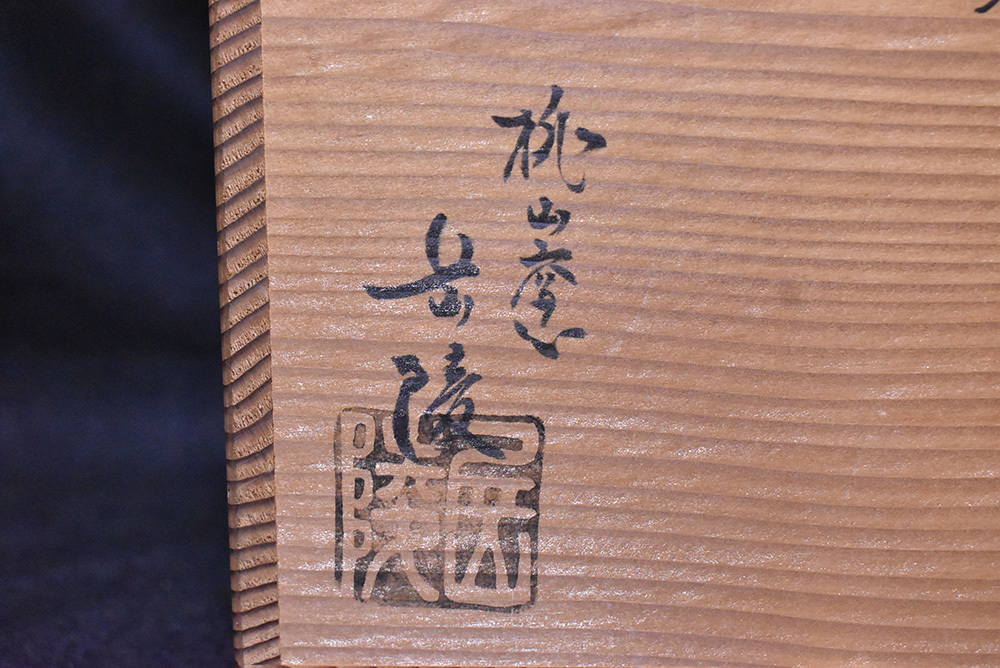 桃山窯
岳陵